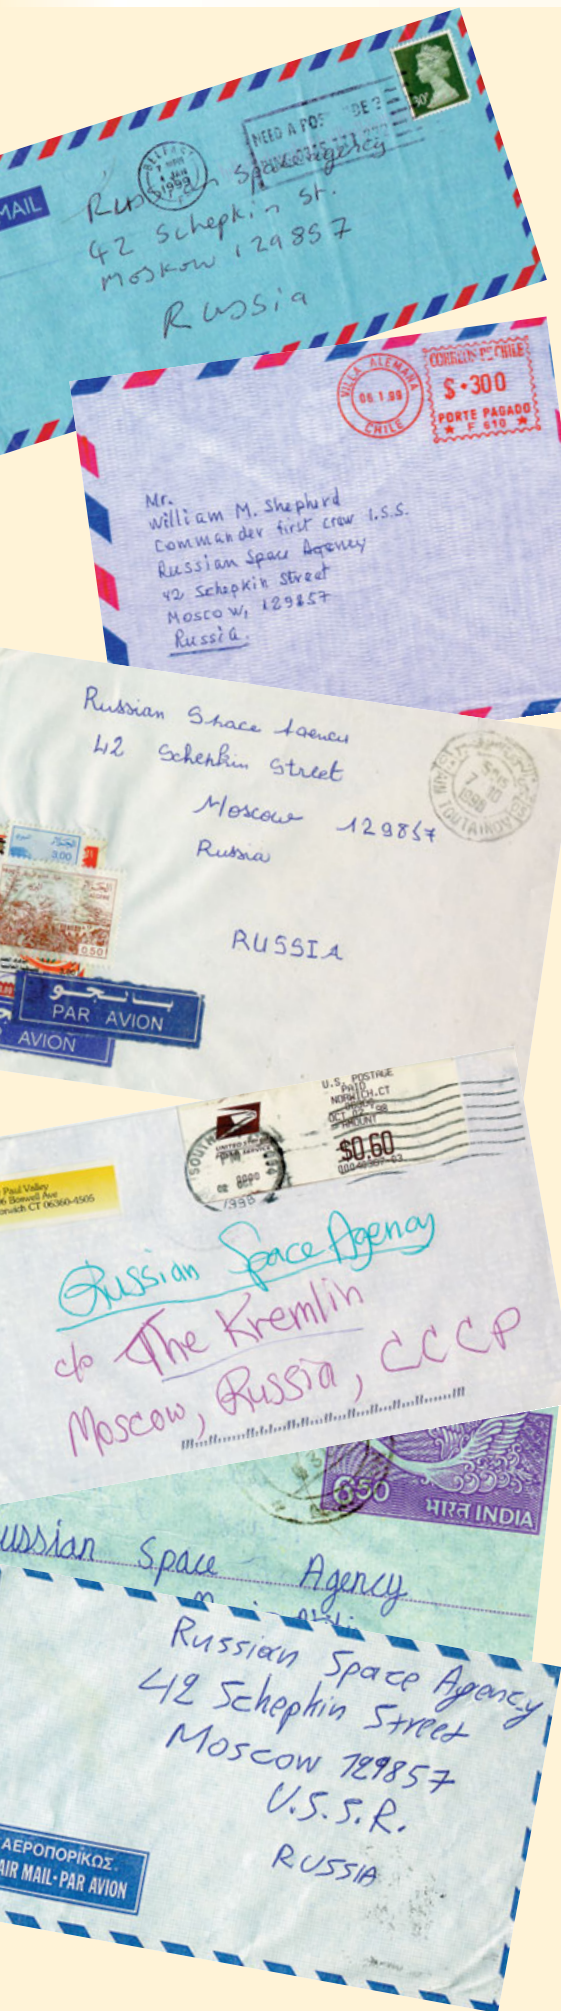 MAIL
BELFAST
4 JAN
1999
NEED A
30
Russian Space Agency
42 Schepkin St.
Moskow 129857
Russia
VILLA ALEMANA
06.1.99
CHILE
CORREOS DE CHILE
$·300
PORTE PAGADO
★ F 610 ★
Mr.
William M. Shepherd
Commander first crew I.S.S.
Russian Space Agency
42 Schepkin Street
Moscow, 129857
Russia.
Russian Space Agency
42 Schepkin Street
Moscow 129857
Russia
RUSSIA
7-10
1998
3,00
0,50
PAR AVION
AVION
U.S. POSTAGE
PAID
NORWICH.CT
OCT 02.98
AMOUNT
$0.60
1998
Paul Valley
Boswell Ave
CT 06360-4505
Russian Space Agency
c/o The Kremlin
Moscow, Russia, CCCP
650
भारत INDIA
ussian Space Agency
Russian Space Agency
42 Schepkin Street
Moscow 129857
U.S.S.R.
RUSSIA
ΑΕΡΟΠΟΡΙΚΩΣ.
AIR MAIL·PAR AVION